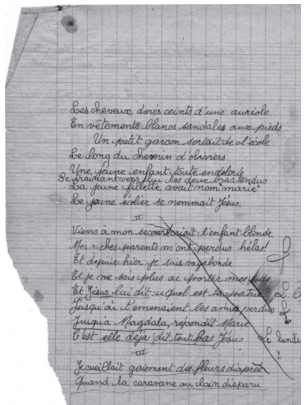 Les cheveux dorés ceints d'une auréole
En vêtements blancs sandales aux pieds
Un petit garçon sortait de l'école
Le long du chemin d'oliviers
Une jeune enfant toute endolorie
Se traînait vers lui les deux bras tendus
La jeune fillette avait nom Marie
Le jeune écolier se nommait Jésus
II
Viens à mon secours criait l'enfant blonde
Mes riches parents m'ont perdus hélas!
Et depuis hier je suis vagabonde
Et je ne sais plus où porter mes pas
Et Jésus lui dit: quel est la
Jusqu'où t'emmenaient les amis perdus
Jusqu'à Magdala, répondit Marie
C'est elle déjà dit tout bas Jésus
III
Je cueillait gaiement des fleurs
Quand la caravane au loin disparu